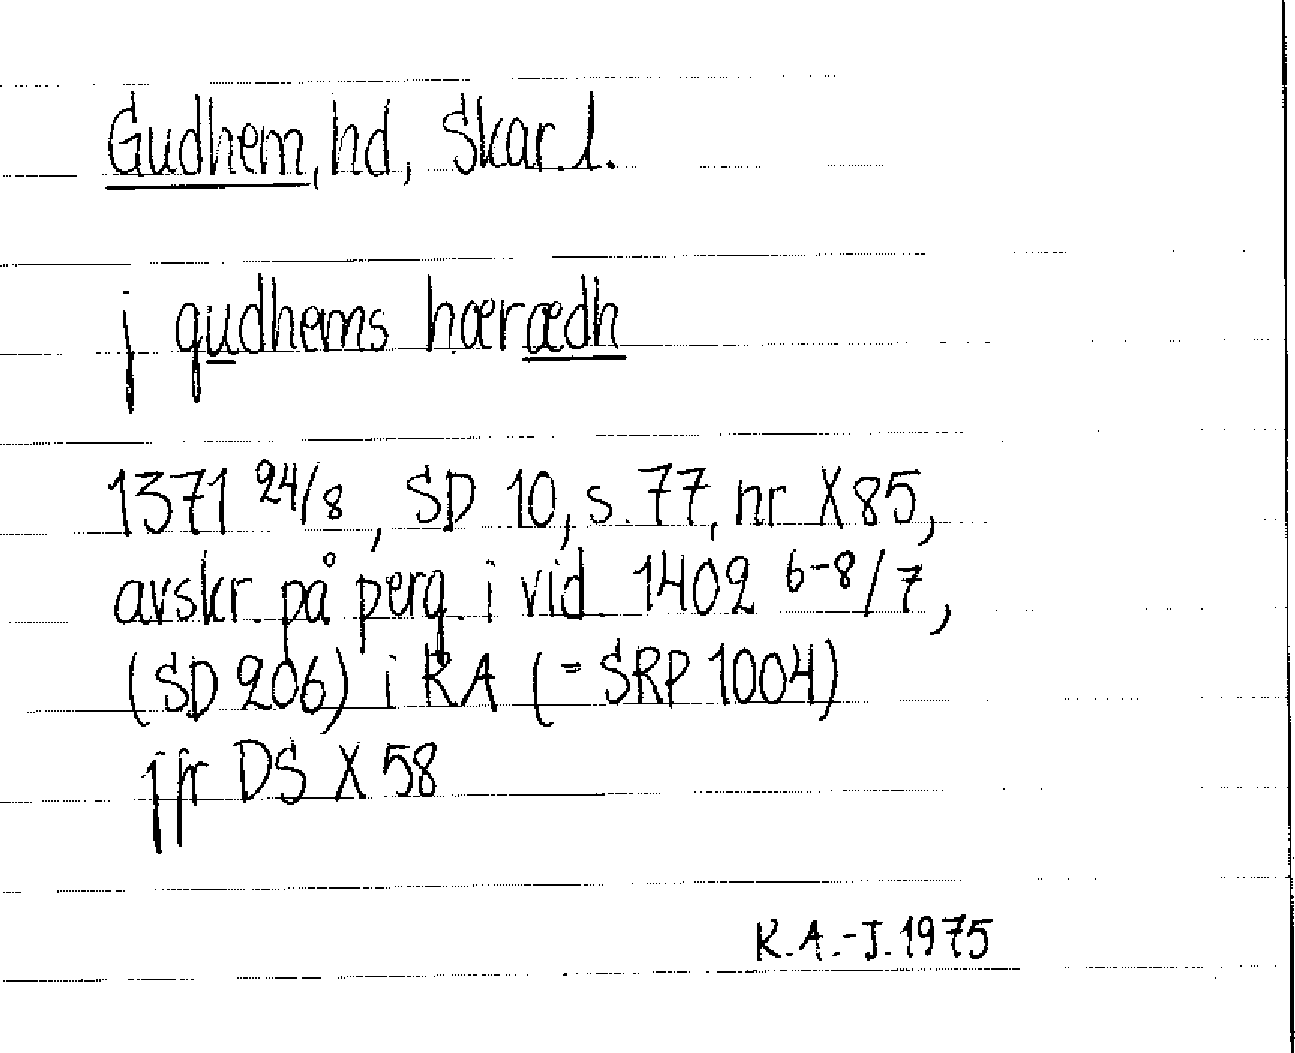 Gudhem, hd, Skar. l.
j gudhems hærædh
1371 24/8, SD 10, s. 77, nr X 85,
avskr. på perg. i vid. 1402 6-8/7,
(SD 206) i RA (= SRP 1004)
jfr DS X 58
K.A.-J. 1975